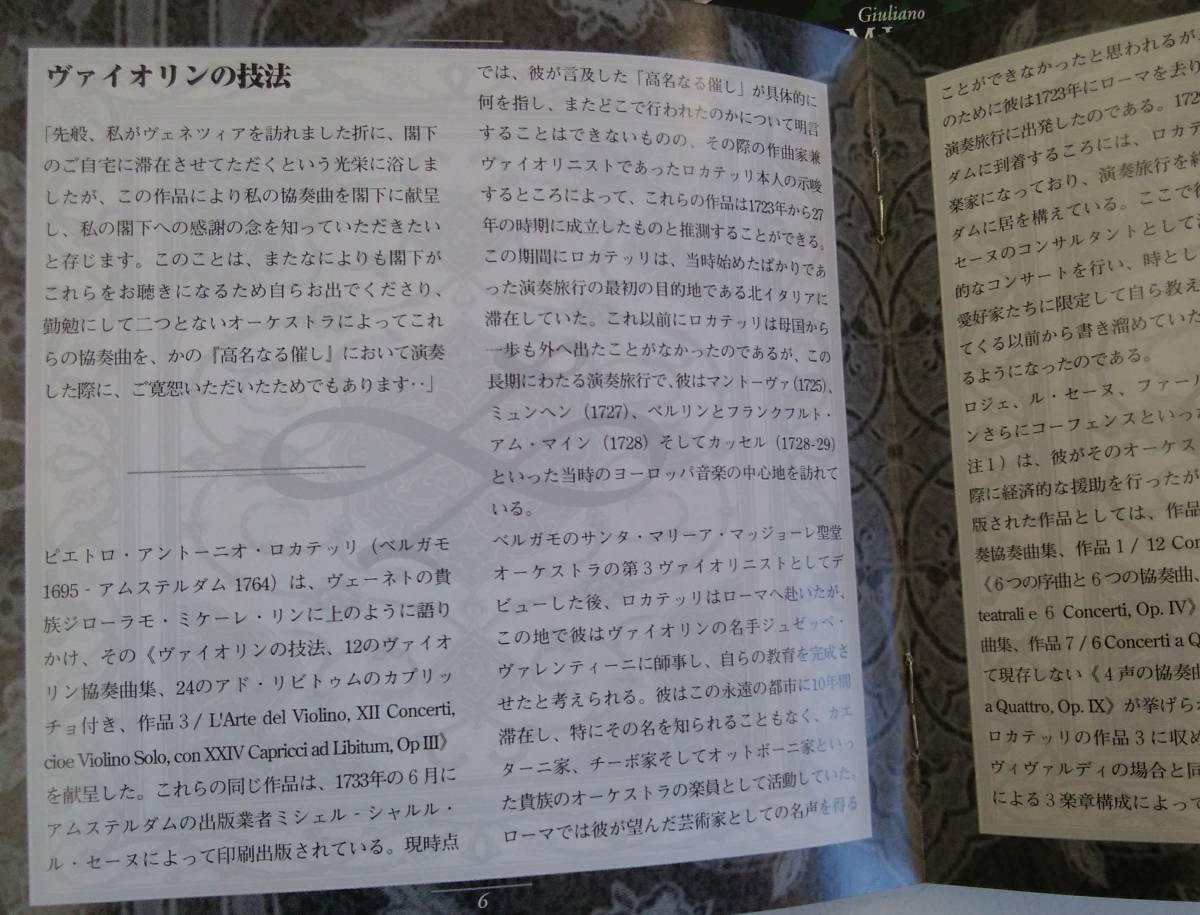 Giuliano
ヴァイオリンの技法
「先般、私がヴェネツィアを訪れました折に、閣下
のご自宅に滞在させてただくという光栄に浴しま
したが、この作品により私の協奏曲を閣下に献呈
し、私の閣下への感謝の念を知っていただきたい
と存じます。このことは、またなによりも閣下が
これらをお聴きになるため自らお出でくださり、
勤勉にして二つとないオーケストラによってこれ
らの協奏曲を、かの『高名なる催し』において演奏
した際に、ご寛恕いただいたためでもあります‥」
ピエトロ・アントーニオ・ロカテッリ（ベルガモ
1695 - アムステルダム 1764）は、ヴェーネトの貴
族ジローラモ・ミケーレ・リンに上のように語り
かけ、その《ヴァイオリンの技法、12のヴァイオ
リン協奏曲集、24のアド・リビトゥムのカプリッ
チョ付き、作品3 / L'Arte del Violino, XII Concerti,
cioe Violino Solo, con XXIV Capricci ad Libitum, Op III》
を献呈した。これらの同じ作品は、1733年の6月に
アムステルダムの出版業者ミシェル - シャルル・
ル・セーヌによって印刷出版されている。現時点
では、彼が言及した「高名なる催し」が具体的に
何を指し、またどこで行われたのかについて明言
することはできないものの、その際の作曲家兼
ヴァイオリニストであったロカテッリ本人の示唆
するところによって、これらの作品は1723年から27
年の時期に成立したものと推測することができる。
この期間にロカテッリは、当時始めたばかりであ
った演奏旅行の最初の目的地である北イタリアに
滞在していた。これ以前にロカテッリは母国から
一歩も外へ出たことがなかったのであるが、この
長期にわたる演奏旅行で、彼はマントーヴァ(1725)、
ミュンヘン（1727)、ベルリンとフランクフルト・
アム・マイン（1728）そしてカッセル（1728-29）
といった当時のヨーロッパ音楽の中心地を訪れて
いる。
ベルガモのサンタ・マリーア・マッジョーレ聖堂
オーケストラの第3ヴァイオリニストとしてデ
ビューした後、ロカテッリはローマへ赴いたが、
この地で彼はヴァイオリンの名手ジュゼッペ・
ヴァレンティーニに師事し、自らの教育を完成さ
せたと考えられる。彼はこの永遠の都市に10年間
滞在し、特にその名を知られることもなく、カエ
ターニ家、チーボ家そしてオットボーニ家といっ
た貴族のオーケストラの楽員として活動していた。
ローマでは彼が望んだ芸術家としての名声を得る
6
ことができなかったと思われるが、
のために彼は1723年にローマを去り
演奏旅行に出発したのである。172
ダムに到着するころには、ロカテ
楽家になっており、演奏旅行を
ダムに居を構えている。ここで
セーヌのコンサルタントとして
的なコンサートを行い、時とし
愛好家たちに限定して自ら教え
てくる以前から書き溜めていた
るようになったのである。
ロジェ、ル・セーヌ、ファール
ンさらにコーフェンスといった
注1）は、彼がそのオーケス
際に経済的な援助を行ったが
版された作品としては、作品
奏協奏曲集、作品1 / 12 Con
《6つの序曲と6つの協奏曲、
teatrali e 6 Concerti, Op. IV》
曲集、作品7 / 6 Concerti a Q
て現存しない《4声の協奏曲
a Quattro, Op. IX》が挙げら
ロカテッリの作品3に収め
ヴィヴァルディの場合と同
による3楽章構成によって